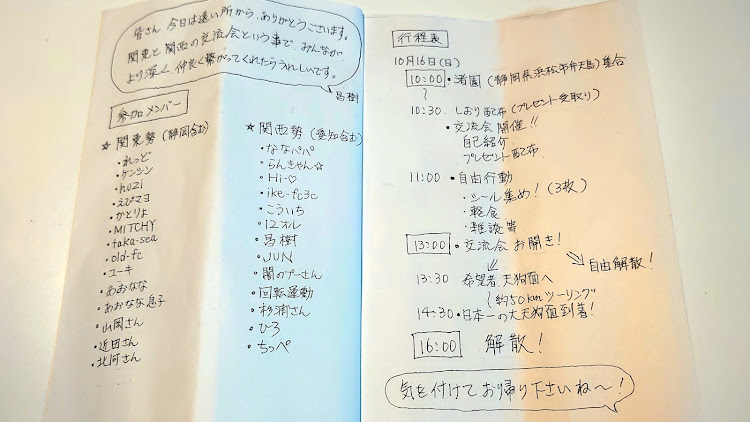 皆さん、今日は遠い所から、ありがとうございます。
関東と関西の交流会という事で、みんなが
より深く、仲良く繋がってくれたらうれしいです。
呂樹
参加メンバー
☆ 関東勢(静岡含む)
・れっど
・ケンシン
・hozi
・えびマヨ
・かとりょ
・MITCHY
・taka-sea
・old-fc
・ユーキ
・あおなな
・あおなな息子
・山岡さん
・近田さん
・北河さん
☆ 関西勢(愛知含む)
・ななパパ
・らんきゃん☆
・Hi-♡
・ike-fc3c
・こういち
・12オル
・呂樹
・JUN
・闇のプーさん
・回転運動
・杉浦さん
・ひろ
・ちっぺ
行程表
10月16日(日)
10:00 ・渚園(静岡県浜松市弁天島)集合
〜
10:30 しおり配布(プレゼント受取り)
・交流会開催!!
自己紹介
プレゼント配布
11:00 ・自由行動
・シール集め!(3枚)
・軽食
・雑談等
13:00 ・交流会お開き!
⇓ ⇘ 自由解散!
13:30 希望者、天狗面へ
約50kmツーリング
14:30・日本一の大天狗面到着!
16:00 解散!
気を付けてお帰り下さいね〜!